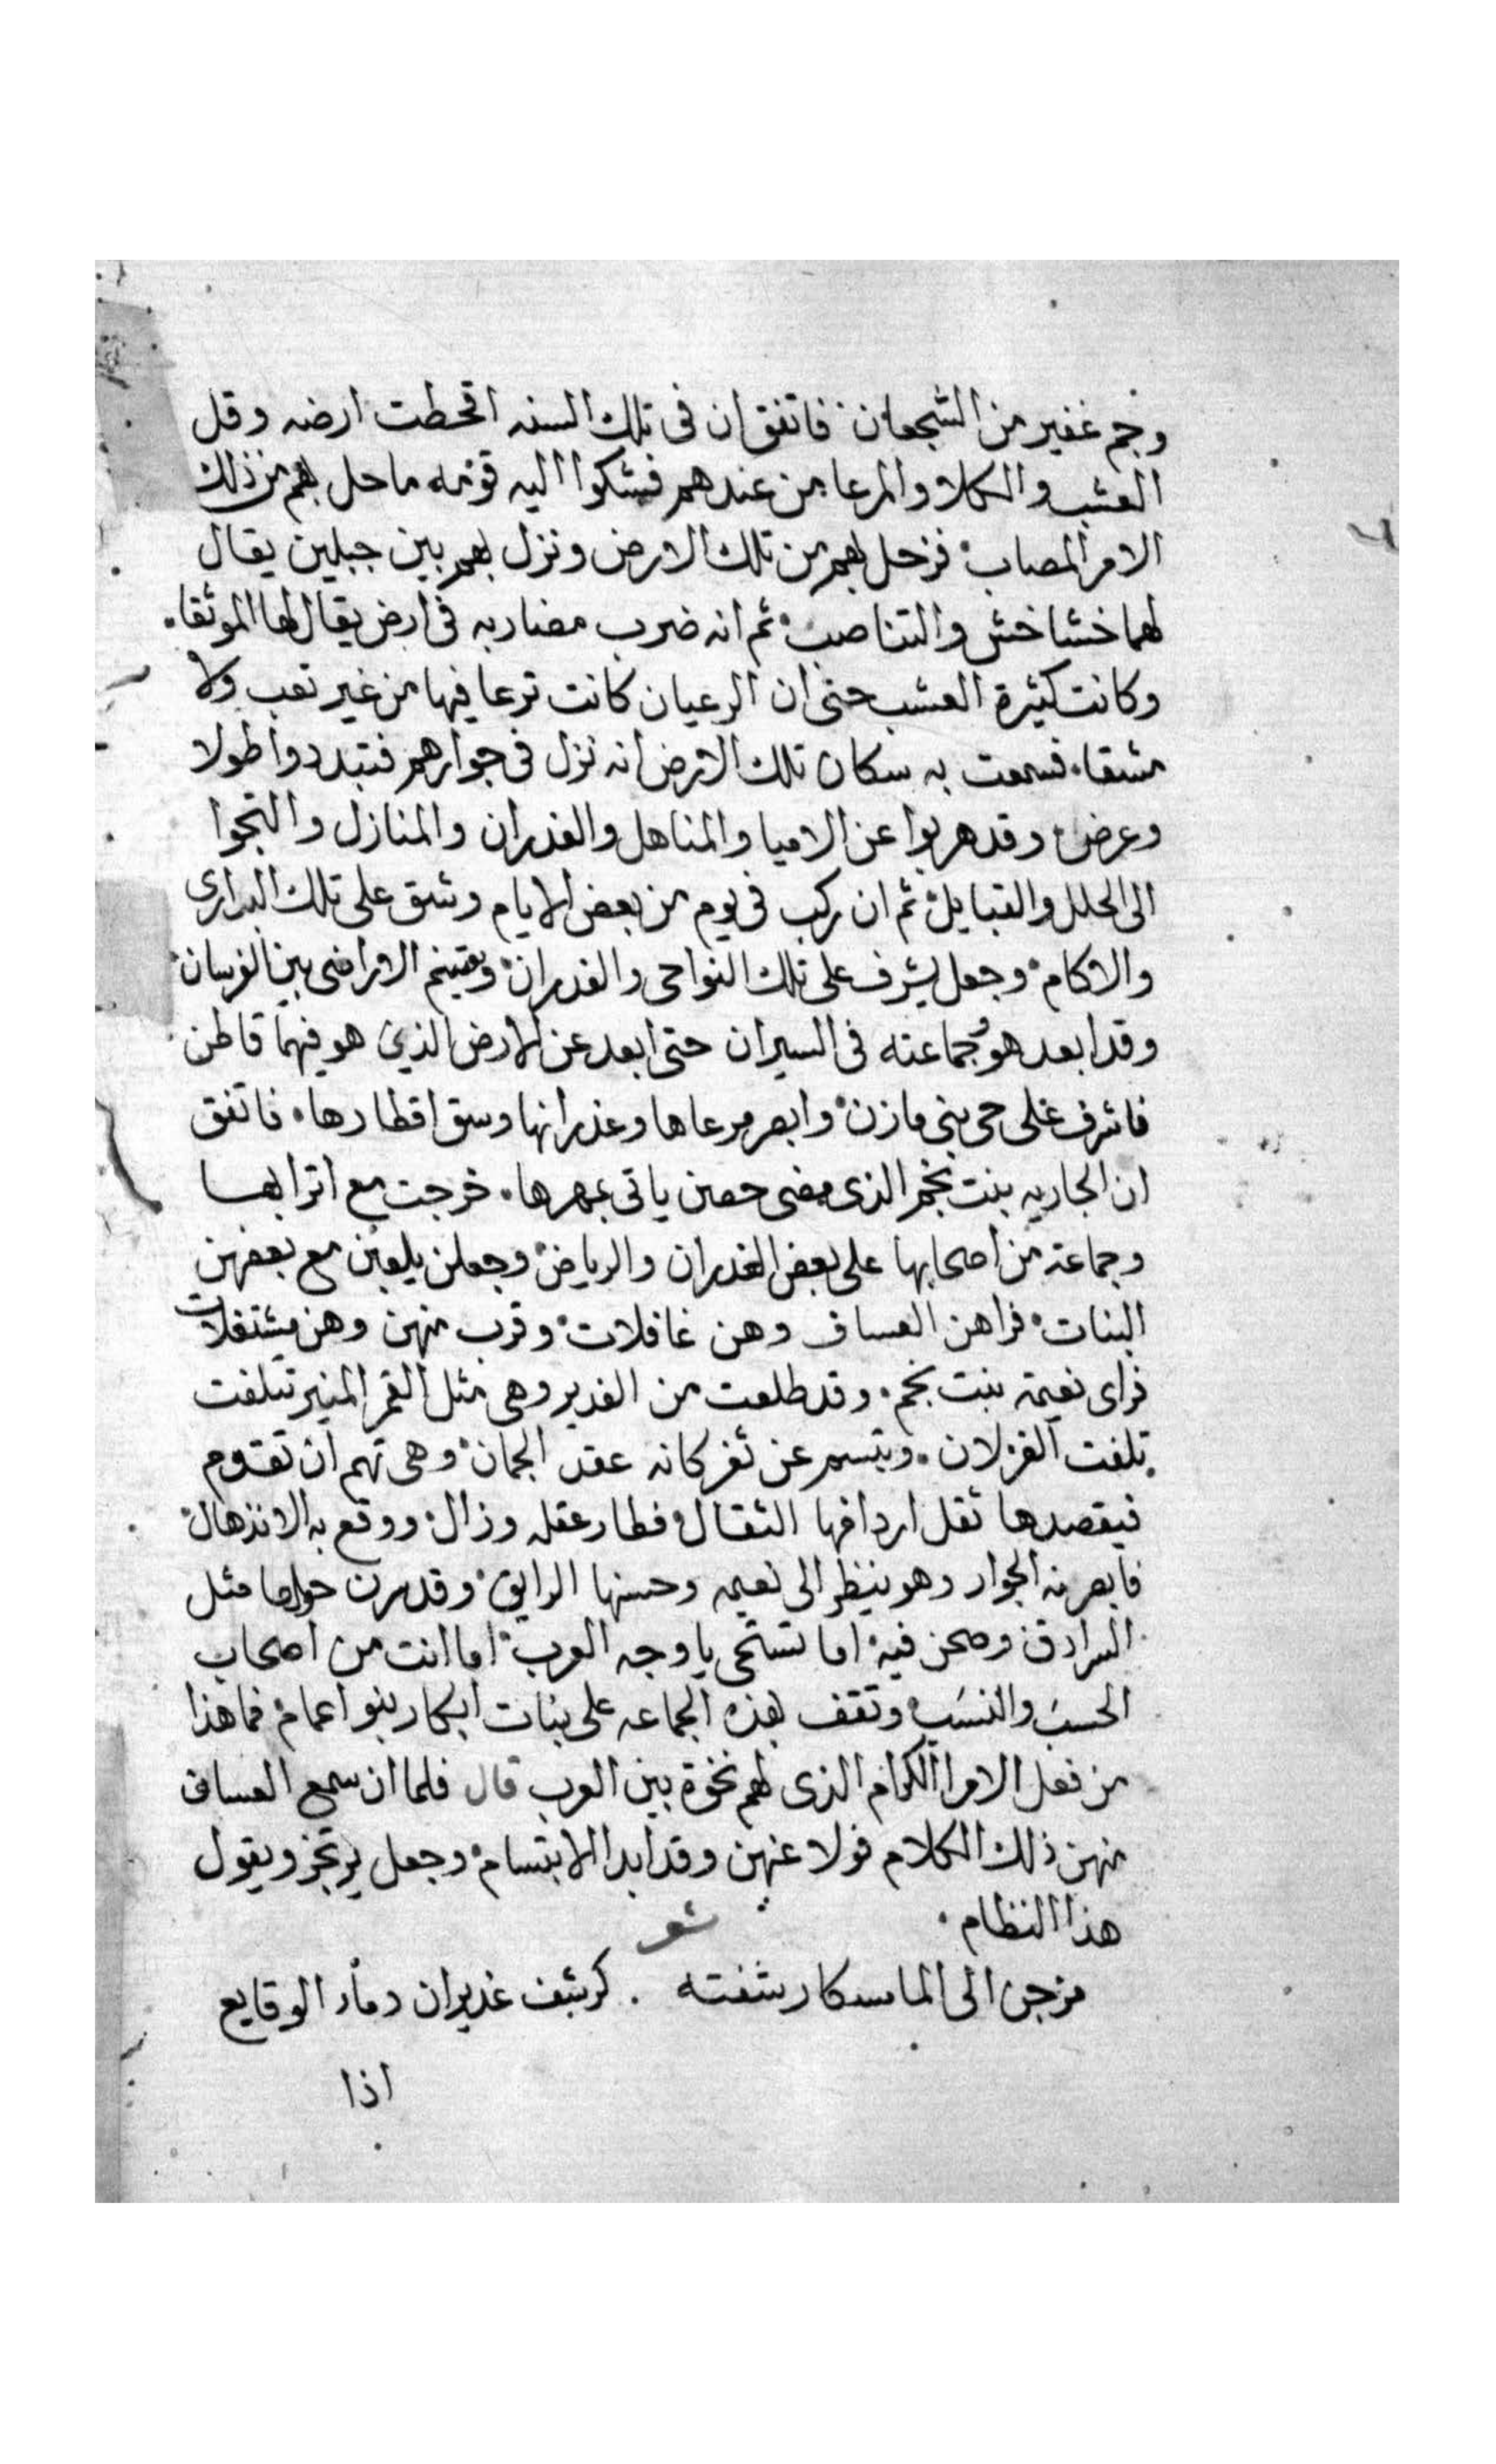 وجم غفير من الشجعان فاتفق ان فى تلك السنه اقحطت ارضه وقل
العشب والكلا والمرعا من عندهم فشكوا اليه قومه ما حل بهم من ذلك
الامر المصاب فرحل بهم من تلك الارض ونزل بهم بين جبلين يقال
لهما خشاخش والتناصب ثم انه ضرب مضاربه فى ارض يقال لها الموثقا
وكانت كثيرة العشب حتى ان الرعيان كانت ترعا فيها من غير تعب ولا
مشقا فسمعت به سكان تلك الارض انه نزل فى جوارهم فتبددوا طولا
وعرض وقد هربوا عن الاميا والمناهل والغدران والمنازل والتجوا
الى الحلل والقبايل ثم ان ركب فى يوم من بعض الايام وشق على تلك البرارى
والاكام وجعل يشرف على تلك النواحى والغدران الاراضى بين الفرسان
وقد ابعد هو وجماعته فى السيران حتى ابعد عن الارض الذي هو فيها قاطن
فاشرف على حى بنى مازن وابصر مرعاها وغدرانها وسق اقطارها فاتفق
ان الجاريه بنت نجم الذى مضى حصين ياتى بمهرها خرجت مع اترابها
وجماعة من اصحابها على بعض الغدران والرياض وجعلن يلعبن مع بعضهن
البنات فراهن العساف وهن غافلات وقرب منهن وهن مشتغلات
فراى نعيمة بنت نجم وقد طلعت من الغدير وهى مثل القمر المنير تتلفت
تلفت الغزلان وتبسم عن ثغر كانه عقد الجمان وهى تهم ان تقوم
فيقعدها ثقل اردافها الثقال فطار عقله وزال ووقع به الانذهال
فابصرنه الجوار وهو ينظر الى نعيمه وحسنها الرايق وقد صرن حولها مثل
السرادق وصحن فيه اما تستحى يا وجه العرب اما انت من اصحاب
الحسب والنسب وتقف بهذه الجماعه على بنات ابكار بنو اعمام فما هذا
من فعل الامرا الكرام الذى لهم نخوة بين العرب قال فلما ان سمع العساف
منهن ذلك الكلام فولا عنهن وقد ابدا الابتسام وجعل يرتجز ويقول
هذا النظام
شعر
الى الما غديران الوقايع
اذا